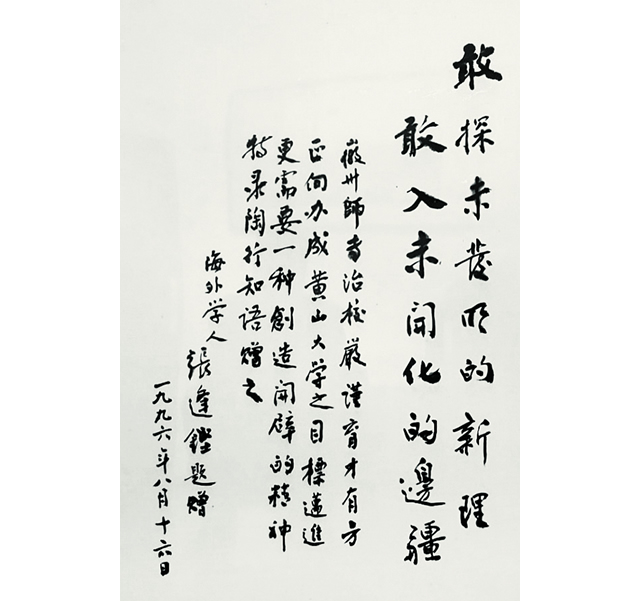 敢探未發明的新理
敢入未開化的邊疆
徽州師专治校嚴謹育才有方
正向办成黄山大学之目標邁進
更需要一种創造開辟的精神
特录陶行知語贈之
海外学人
張逢鑑題贈
一九九六年八月十六日